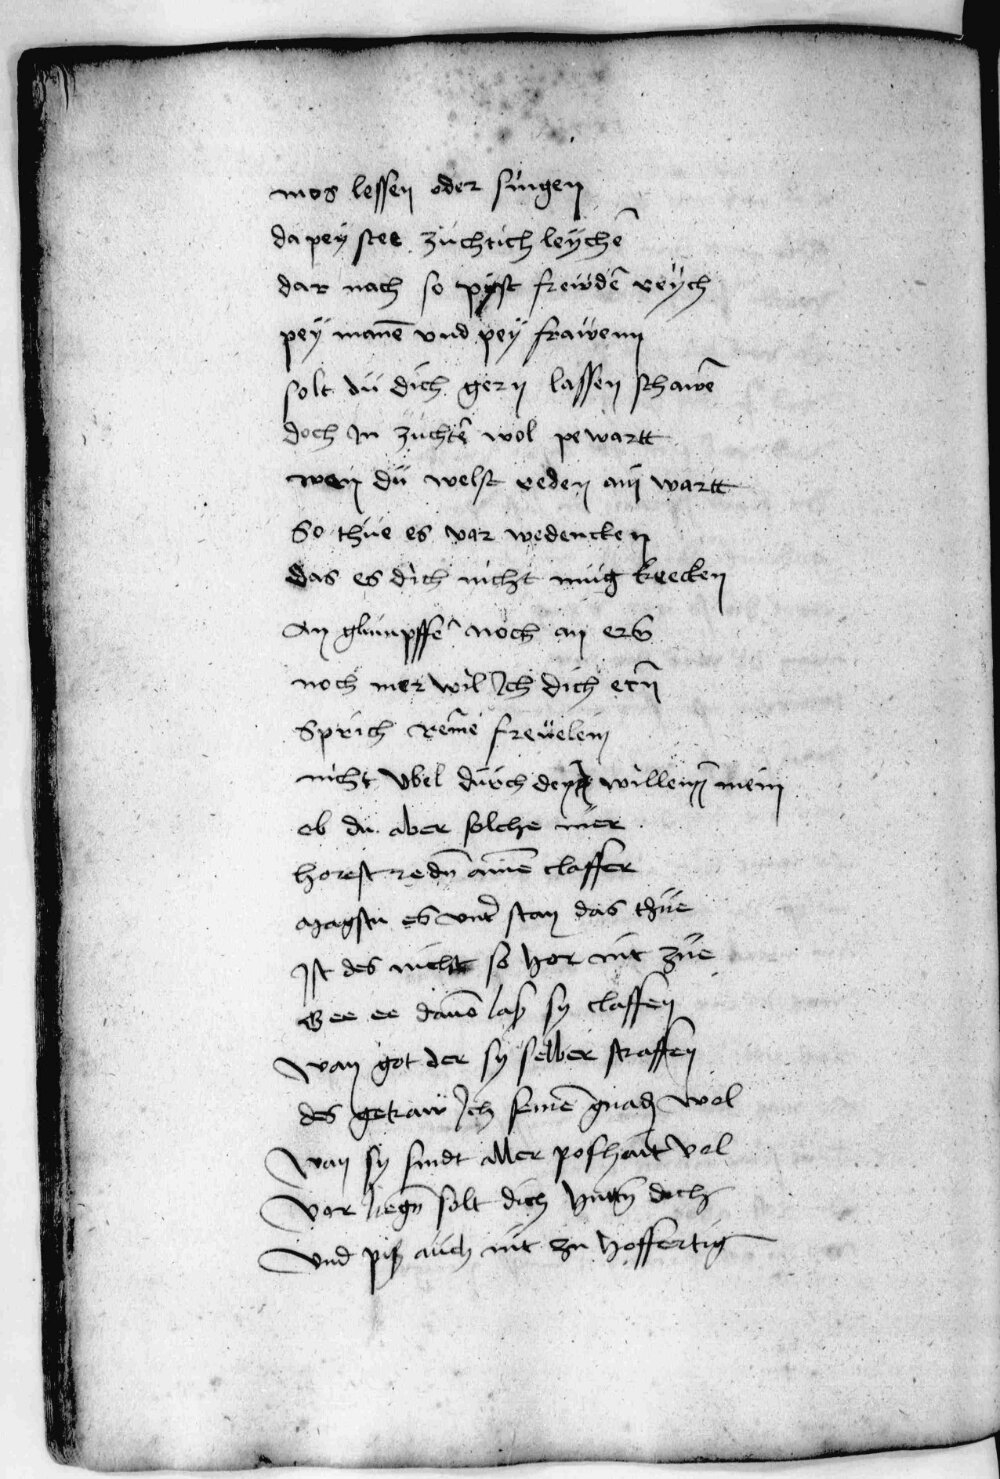 mos lessen oder singen
da pey stet züchtich leychē
dar nach so pyst frewdē reÿch
peÿ manē vnd peÿ fraẅenn
solt dü dich gern lassen schawē
doch In züchtē wol pewartt
wen dü welst reden ain wartt
So thüe es vor wedencken
das es dich nicht müg krecken
An glimpffē noch an erñ
noch mer wil Ich dich erñ
Sprich reinē freüelein
nicht Vbel dürch deyn willenn mein
ob du aber solche mer
horest redn̄ ainē claffer
Magstu es vnter stan das thüe
Ist des nicht so hor nit züe
Gee ee dauō laß sy claffen
Wan got der sy selber straffen
des getraw Ich seinē gnadn wol
Wan sy sindt aller poshait vol
Vor liegn̄ solt dich hüttn̄ doch
Vnd piß aüch nit zu hoffertig